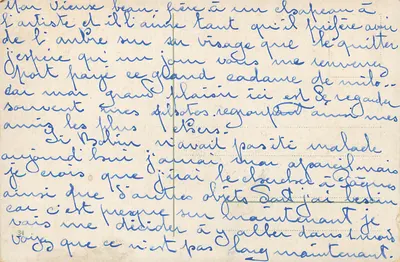 mon vieux beau-père à un chapeau à
l'artiste et il l'aime tant qu'il préfère avoir
de l'ombre sur son visage que le quitter
j'espère qu'un jour vous me renverrez
port payé ce grand de
car mon grand plaisir ici est de regarder
souvent mes photos regroupant ainsi mes
amis les plus chers.
Si Bobin n'avait pas été malade
aujourd'hui j'aurais mon appareil mais
je crois que j'irai le chercher à Cagnes
ainsi que d'autres objets dont j'ai besoin
car c'est presque sûr maintenant je
vais me décider à y aller dans 1 mois
Voyez que ce n'est pas long maintenant.